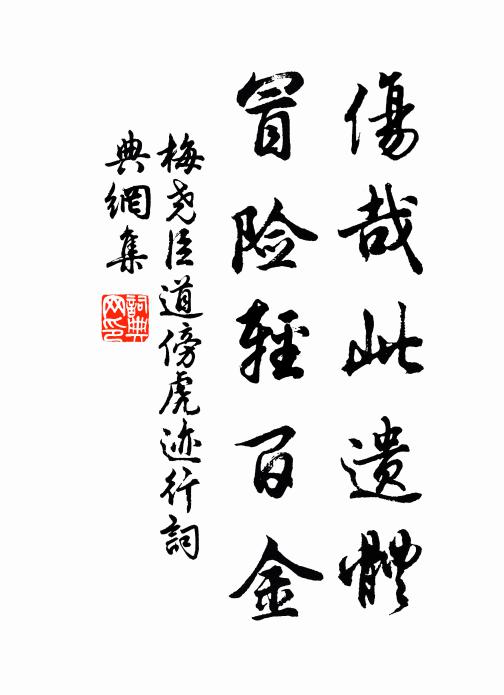 傷哉此遺體
冒险輕百金
梅尧臣道傍虎迹行詞
典網集
詞典网印